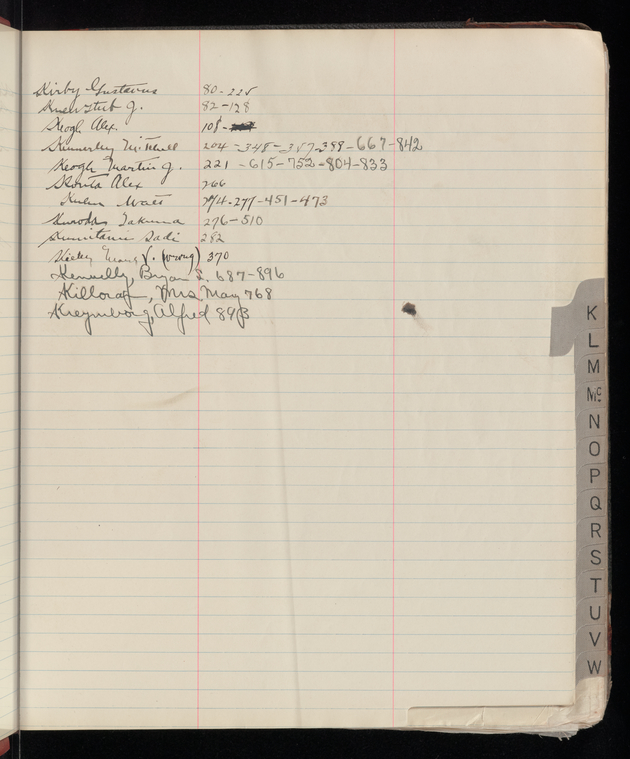 Kirby Gustavus 80-225
Knewstub J. 82-128
Keogh Alex. 108-
Kennerley Mitchell 204-348-357-399-667-842
Keogh Martin J. 221-615-752-804-833
Konta Alex 266
Kuhn Walt 274-277-451-473
Kuroda Takuma 276-510
Kumitani Sadi 282
(wrong) 370
Kennelly, Bryan L. 687-896
Killoran, Mrs May 768
Kreymborg, Alfred 893
K
L
M
Mc
N
O
P
Q
R
S
T
U
V
W